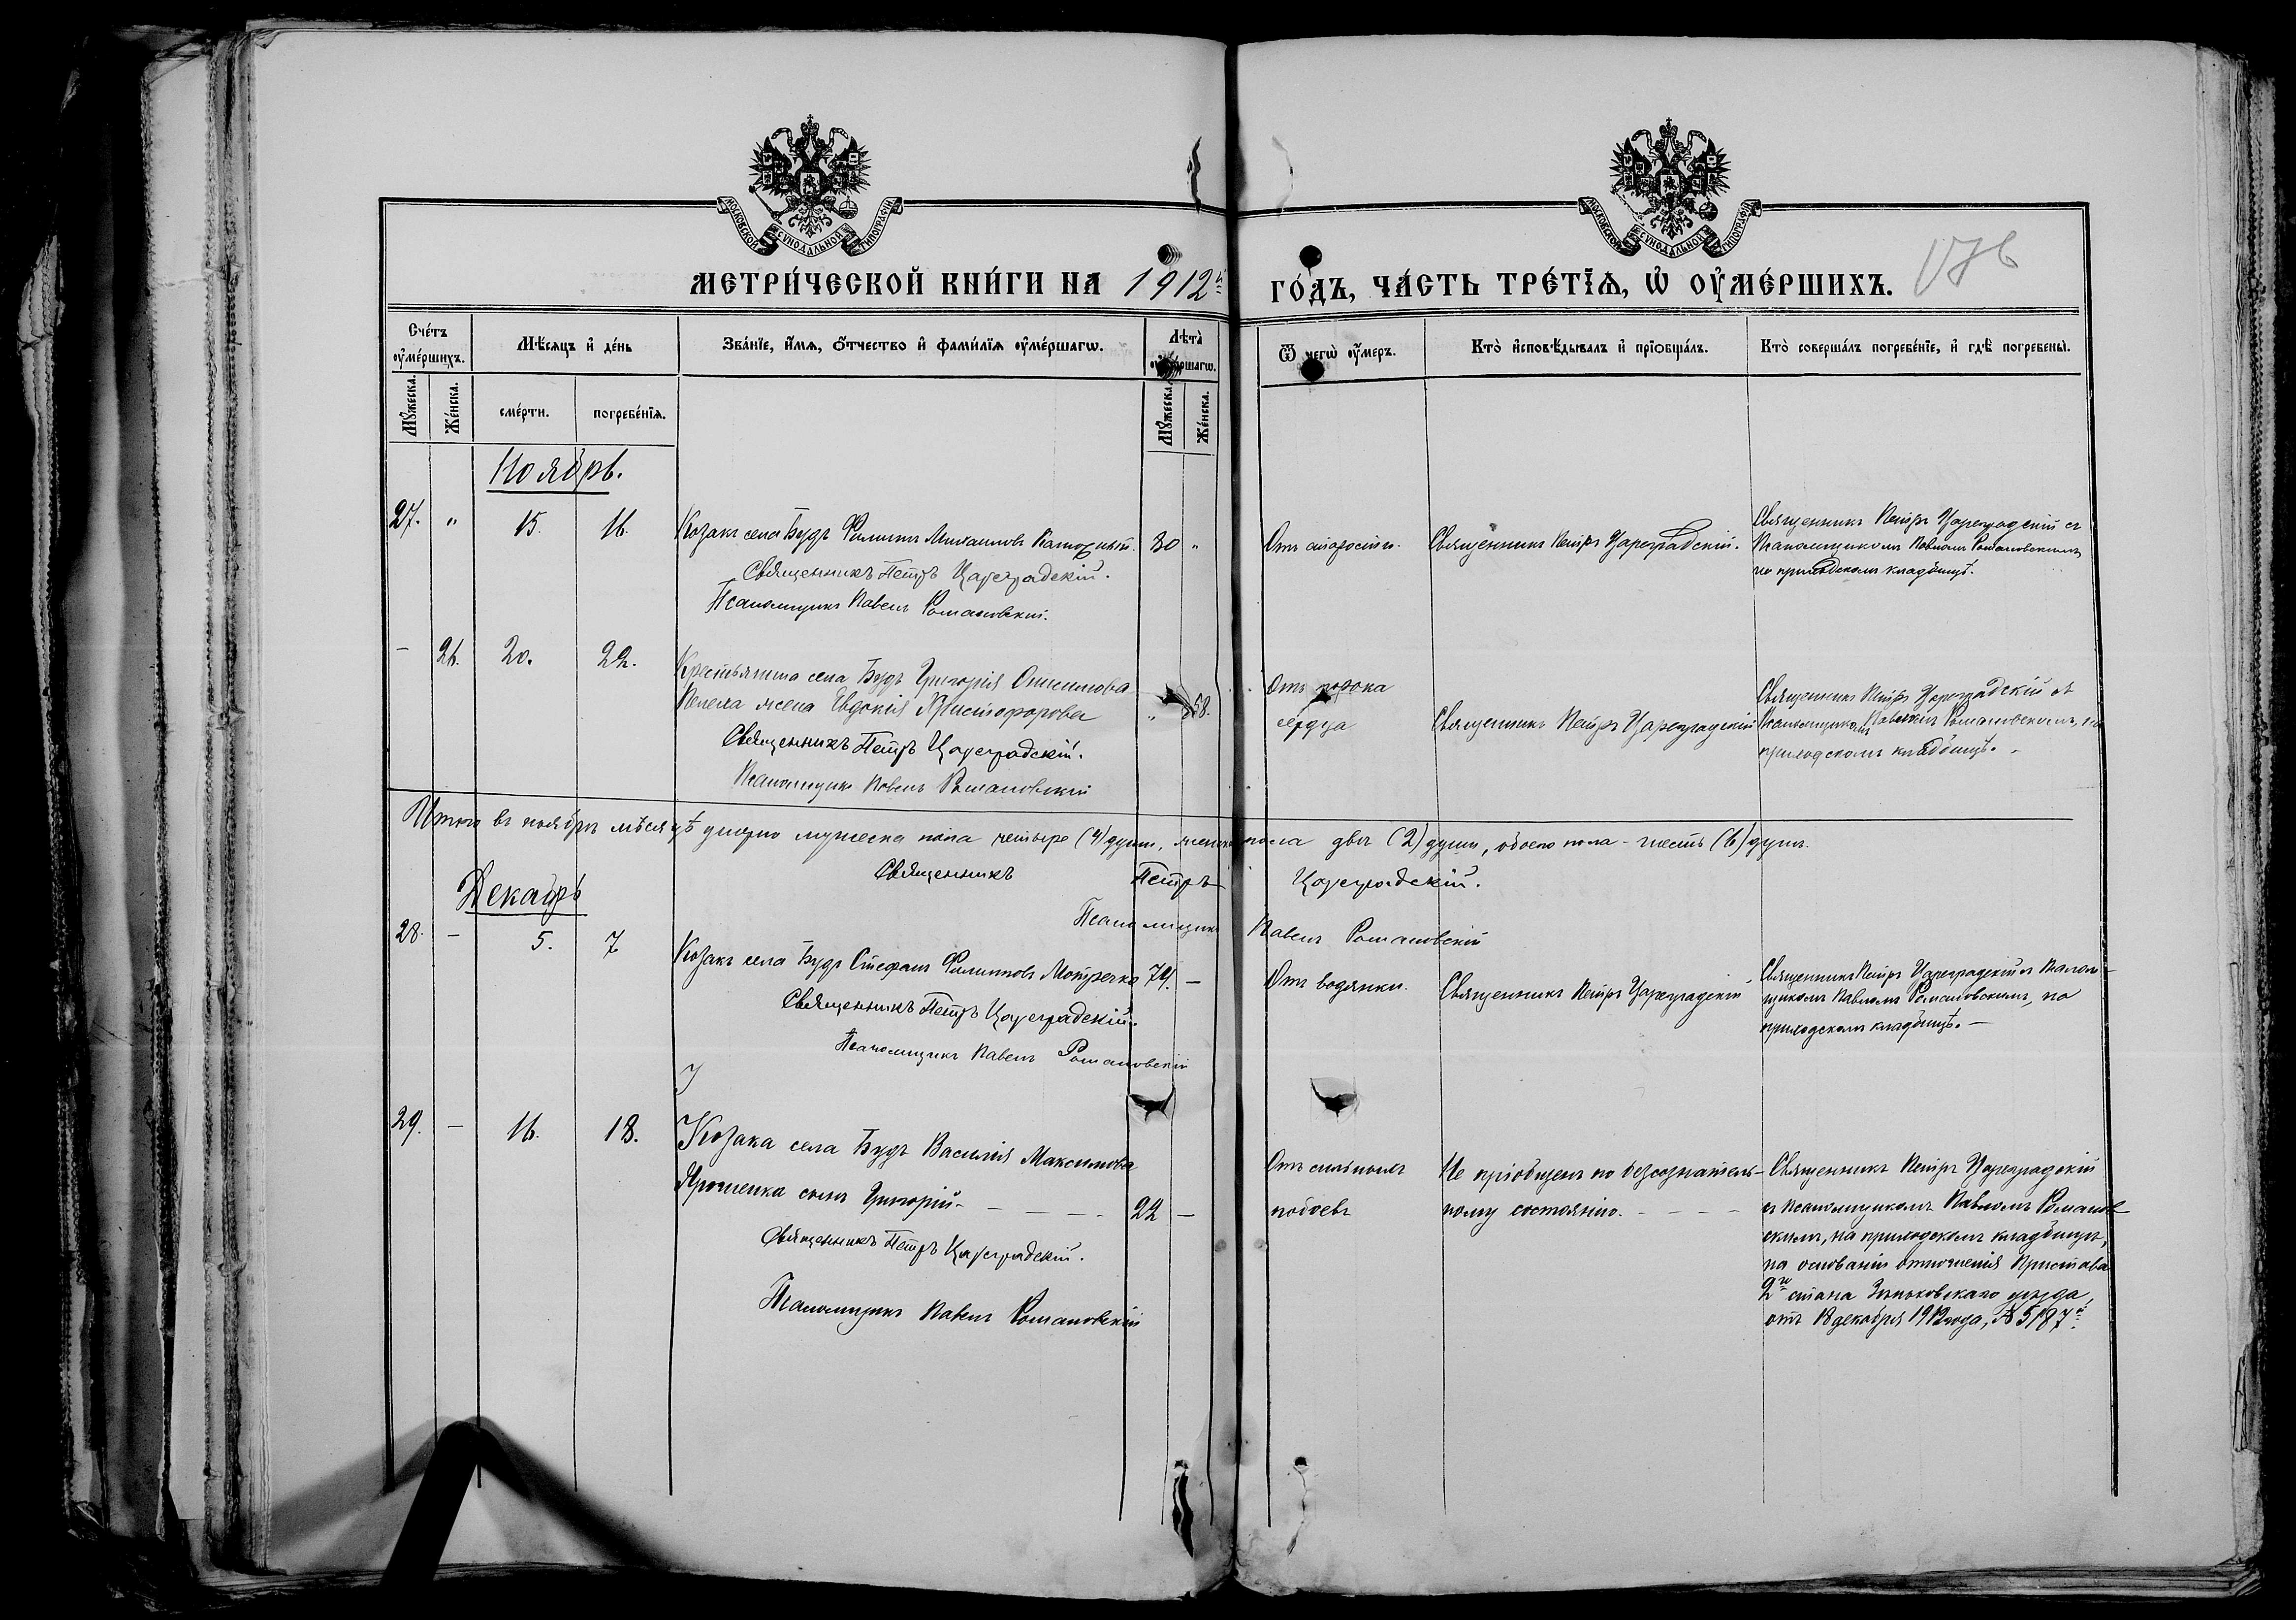 МОСКОВСКОЙ СѴНОДАЛЬНОЙ ТИПОГРАФІИ
МОСКОВСКОЙ СѴНОДАЛЬНОЙ ТИПОГРАФІИ
МЕТРИ́ЧЕСКОЙ КНИ́ГИ НА 1912й
ГО́ДЪ, ЧА́СТЬ ТРЕ́ТІѦ, Ѡ ОУ҆МЕ́РШИХЪ.
Сче́тъ оу҆ме́ршихъ.
Мѣ́сяцъ и҆ де́нь
Зва́нїе, и҆́мѧ, ѻ҆́тчество и҆ фами́лїѧ оу҆ме́ршагѡ.
Лѣта̀ оу҆ме́ршагѡ.
Ѿ чегѡ̀ оу҆́меръ.
Кто̀ и҆сповѣ́дывалъ и҆ прїѡбща́лъ.
Кто̀ соверша́лъ погребе́нїе, и҆ гдѣ̀ погребены̀.
Мꙋ́жеска.
Же́нска.
сме́рти.
погребе́нїѧ.
Мꙋ́жеска.
Же́нска.
Ноябрь.
27. " 15. 16. Козакъ села Будъ Филиппъ Михаиловъ 80 "
Священникъ Петръ Цареградскій.
Псаломщикъ Павелъ Романовскій.
Отъ старости.
Священникъ Петръ Цареградскій.
Священникъ Петръ Цареградскій съ
Псаломщикомъ Павломъ Романовскимъ,
на приходскомъ кладбищѣ.
– 26. 20. 22. Крестьянина села Будъ Григорія Онисимова
жена Евдокія Христофорова " 58.
Священникъ Петръ Цареградскій.
Псаломщикъ Павелъ Романовскій
Отъ порока
сердца
Священникъ Петръ Цареградскій
Священникъ Петръ Цареградскій съ
Псаломщикомъ Павломъ Романовскимъ, на
приходскомъ кладбищѣ.
Итого въ ноябрѣ мѣсяцѣ умерло мужеска пола четыре (4) души, женска пола двѣ (2) души, обоего пола – шесть (6) душъ.
Священникъ Петръ Цареградскій.
Псаломщикъ Павелъ Романовскій
Декабрь
28. – 5. 7 Козакъ села Будъ Стефанъ Филипповъ 74. –
Священникъ Петръ Цареградскій.
Псаломщикъ Павелъ Романовскій
Отъ водянки.
Священникъ Петръ Цареградскій
Священникъ Петръ Цареградскій съ Псалом-
щикомъ Павломъ Романовскимъ, на
приходскомъ кладбищѣ. –
29. – 16. 18. Козака села Будъ Василія Максимова
Ярошенка сынъ Григорій 22 –
Священникъ Петръ Цареградскій.
Псаломщикъ Павелъ Романовскій
Отъ сильныхъ
побоевъ
Не пріобщенъ по безсознатель-
ному состоянію.
Священникъ Петръ Цареградскій
съ псаломщикомъ Павломъ Романов
скимъ, на приходскомъ кладбищѣ,
на основаніи отношенія Пристава
2го стана Зѣньковскаго уѣзда,
отъ 18 декабря 1912 года, № 5187й.